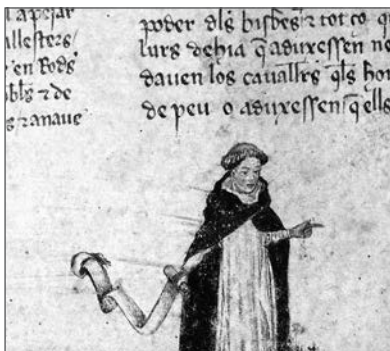 l apejar
allesters/
en Rodg
⁊ de
⁊ anaue
poder dls bisbes ⁊ tot co q
lurs debia q̄ aduxessen ne
dauen los cauallrs qls hom
de peu o aduxessen q̄ ells